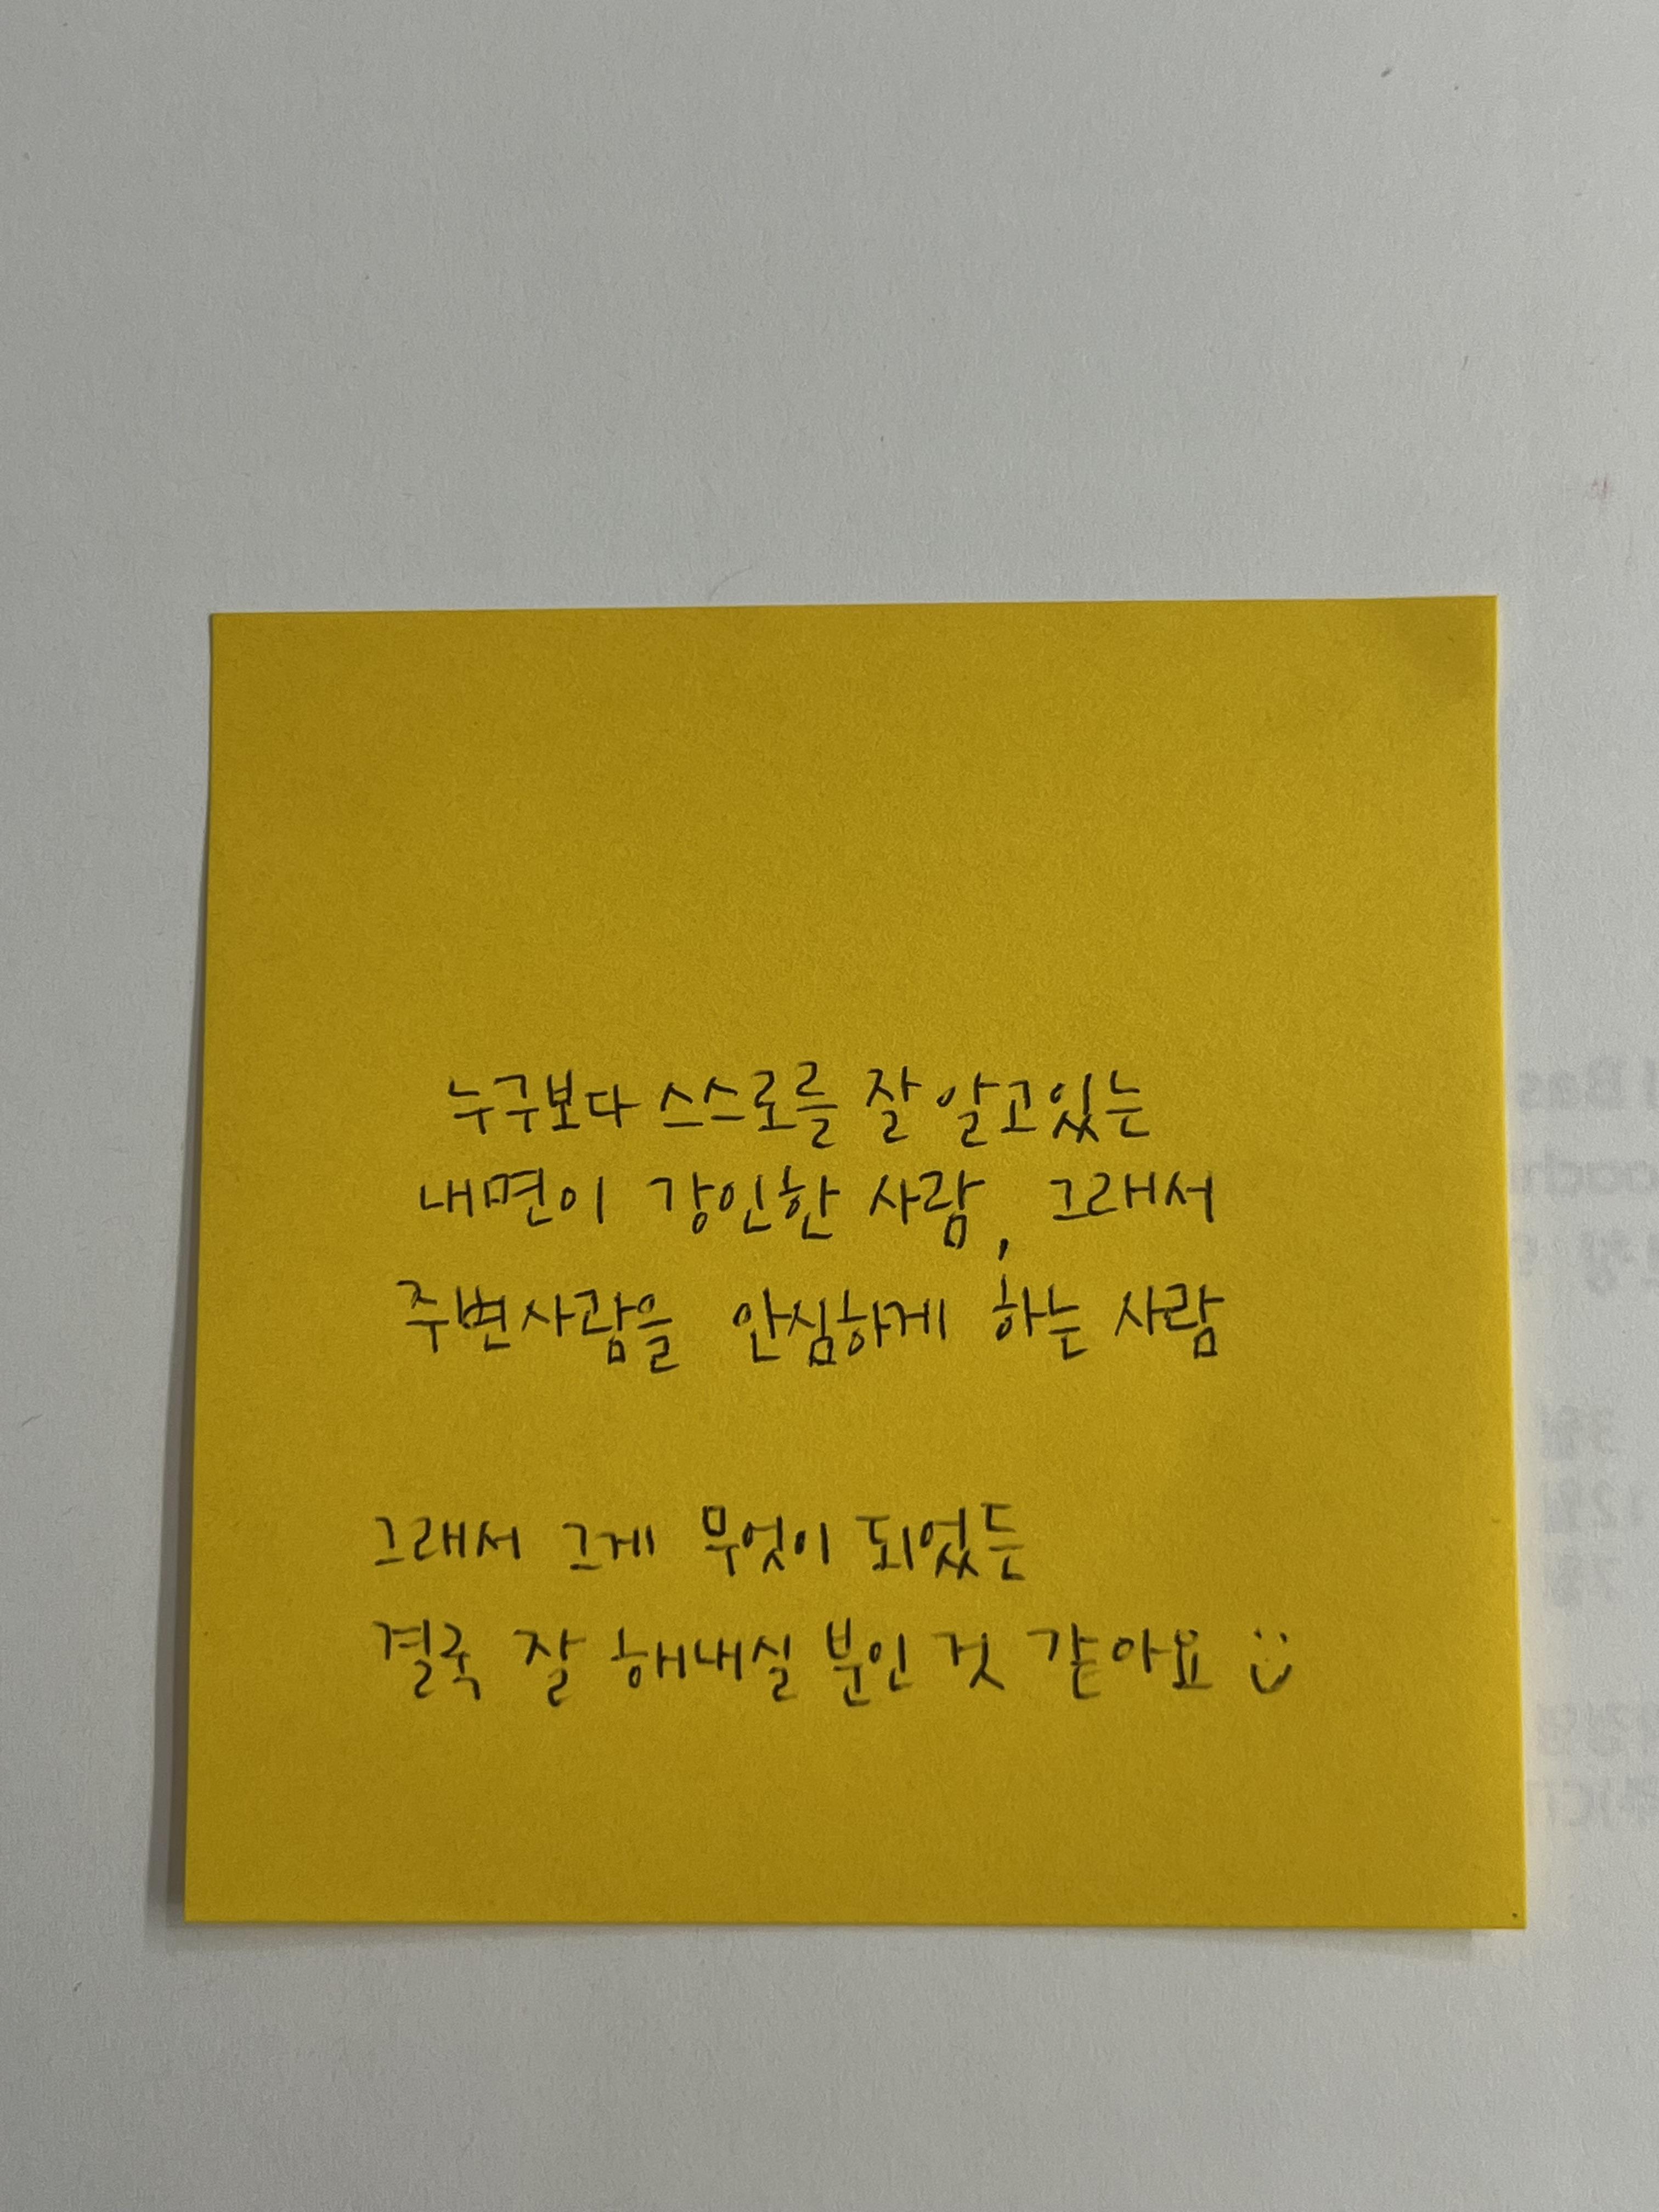 누구보다 스스로를 잘 알고있는
내면이 강인한 사람, 그래서
주변사람을 안심하게 하는 사람
그래서 그게 무엇이 되었든
결국 잘 해내실 분인 것 같아요 :)